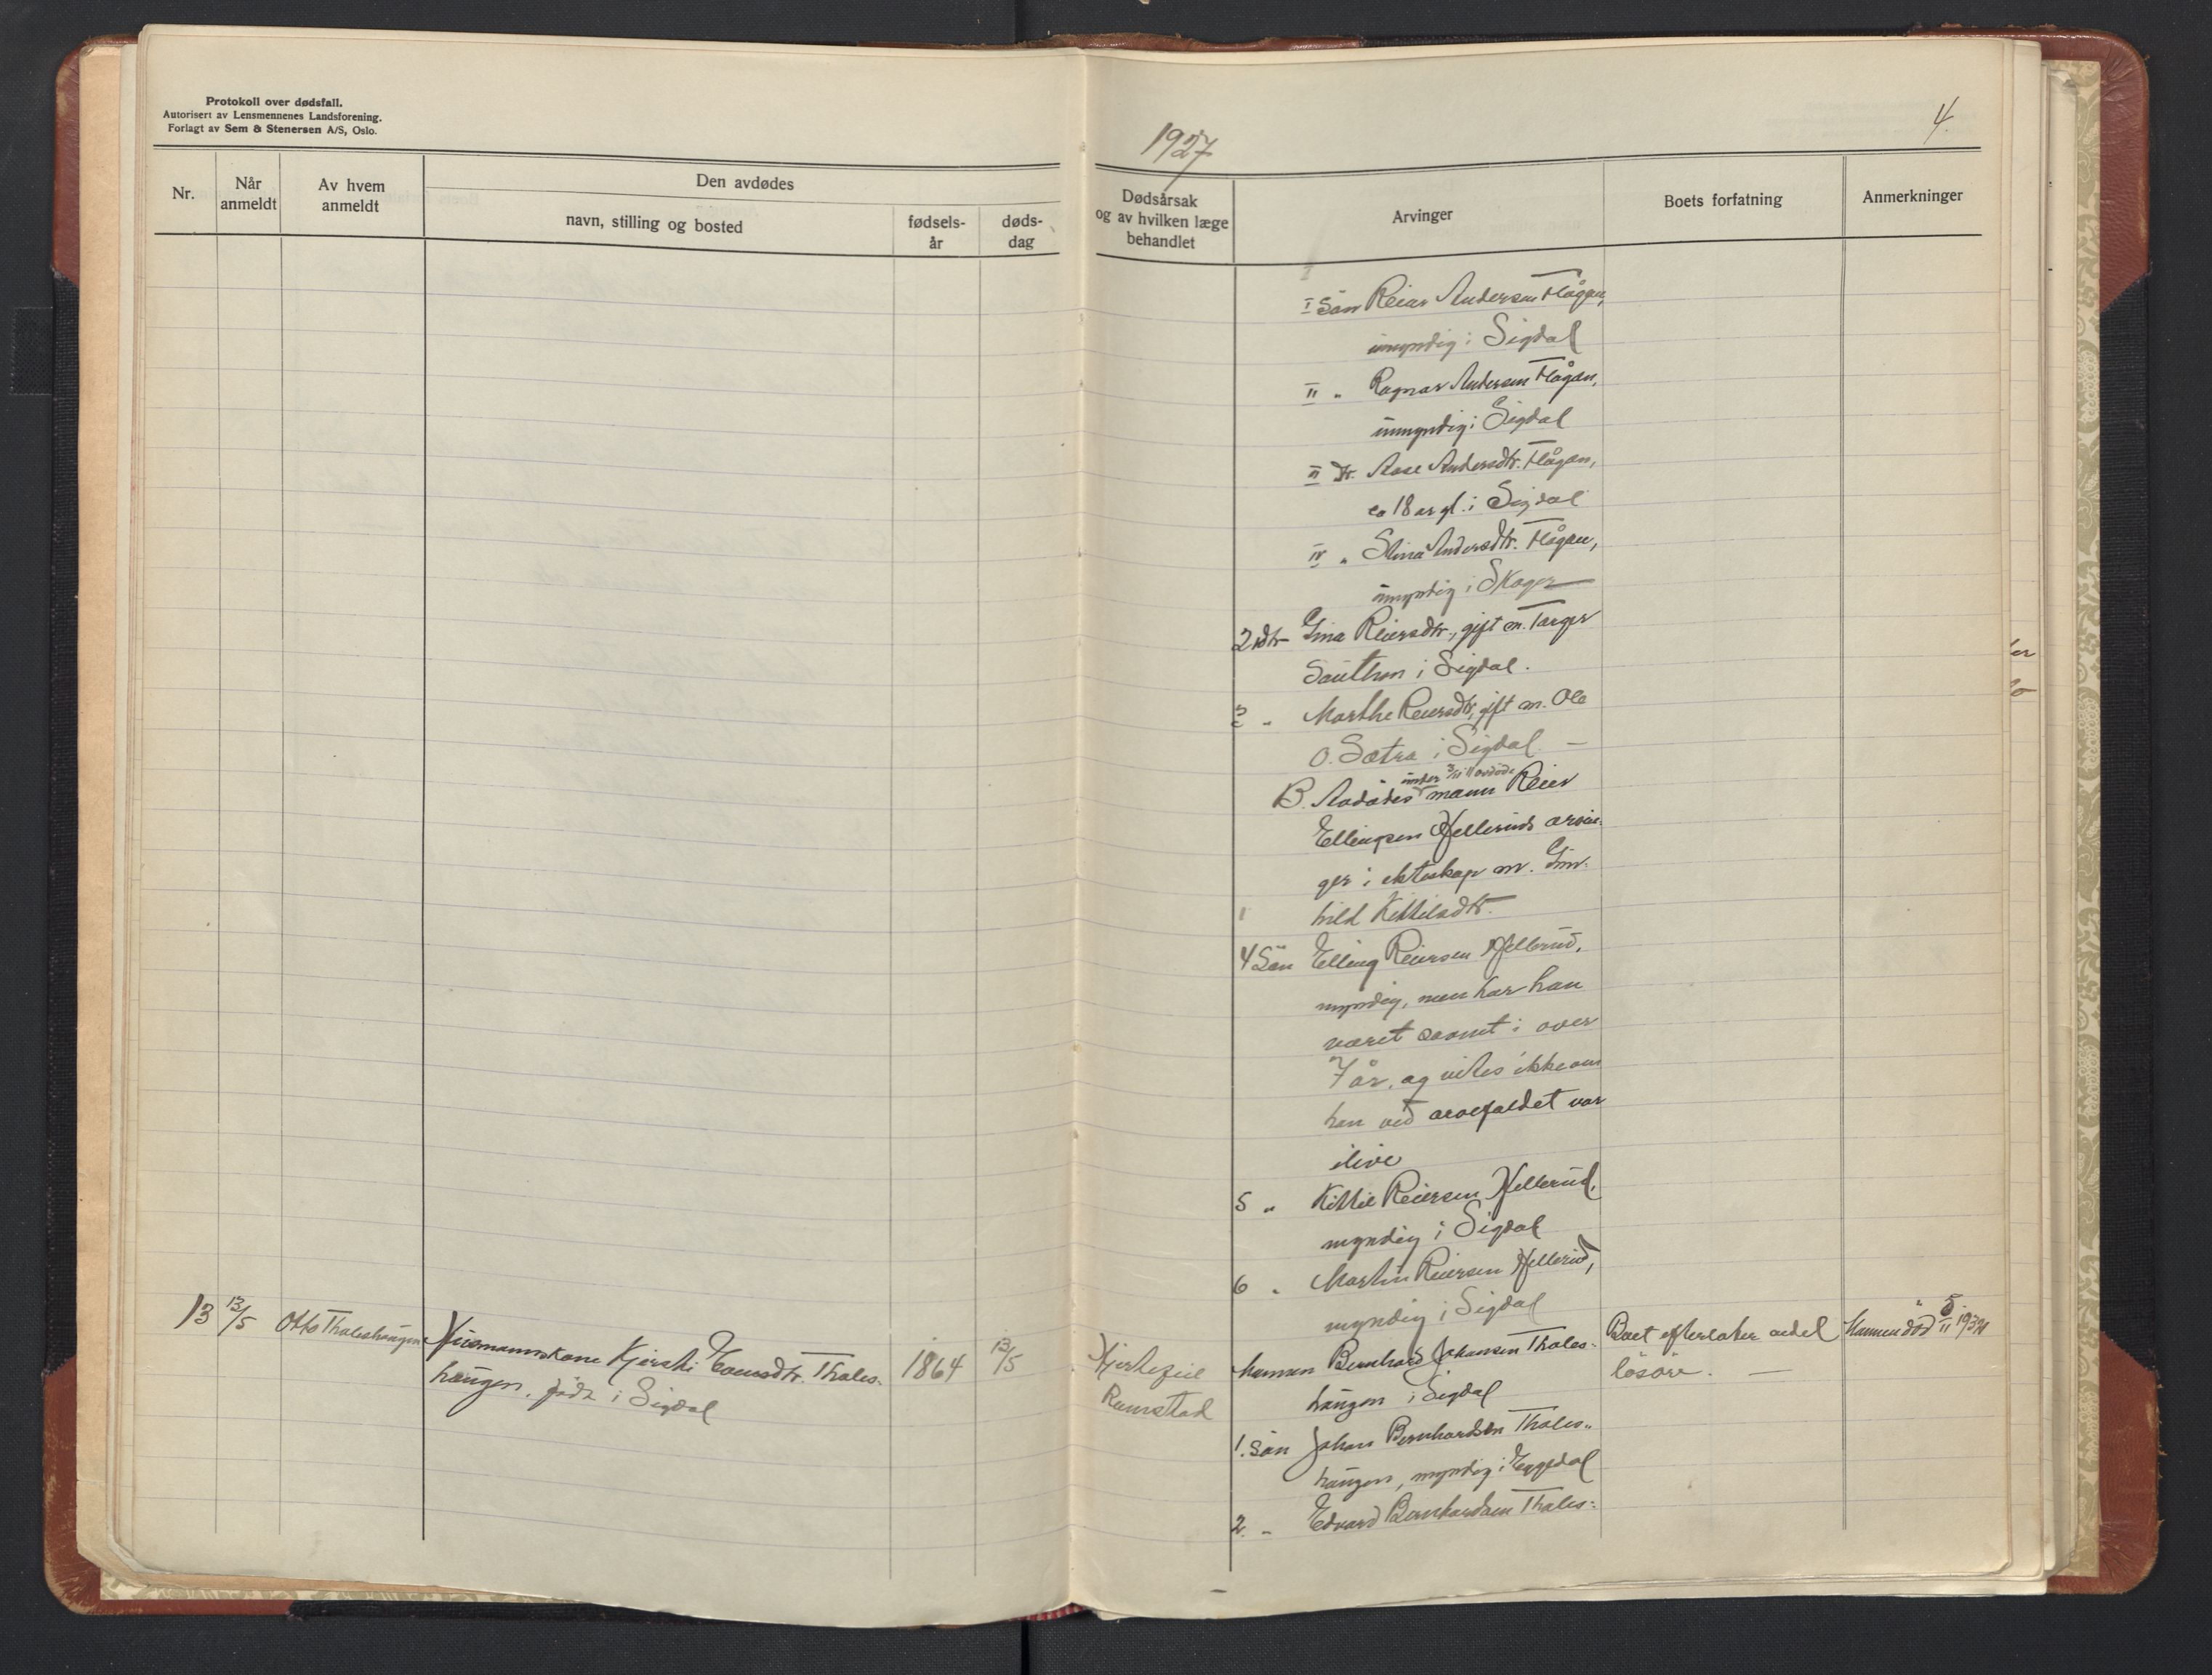 Protokoll over dødsfall.
Autorisert av Lensmennenes Landsforening.
Forlagt av Sem & Stenersen A/S, Oslo.
1927
4.
Nr.
Når anmeldt
Av hvem anmeldt
Den avdødes
navn, stilling og bosted
fødselsår
dødsdag
Dødsårsak og av hvilken læge behandlet
Arvinger
Boets forfatning
Anmerkninger
I Sön Reier Andersen Hågan,
umyndig i Sigdal
II „ Ragnar Andersen Hågan,
umyndig i Sigdal
Dr. Aase Andersdtr. Hågan,
ca 18 år gl. i Sigdal
IV „ Stina Andersdtr. Hågan,
umyndig i Skoger
2 dtr Gina Reiersdtr., gift m. Torger
i Sigdal.
3 „ Marthe Reiersdtr, gift m. Ole
O. Sætra i Sigdal. —
B. Avdödes mann Reier
Ellingsen Hellerud's arvin-
ger i ekteskap m. Gun-
hild Kittilsdtr.
4 Sön Elling Reiersen Hellerud,
myndig, men har han
været i over
7 år, og vites ikke om
han ved arvefaldet var
ilive
5 „ Kittil Reiersen Hellerud,
myndig i Sigdal
6 „ Martin Reiersen Hellerud,
myndig i Sigdal
13 13/5 Otto Thaleshaugen
Husmannskone Kjersti Thales-
haugen, född i Sigdal
1864 13/5
Hjertefeil
Ramstad
Mannen Bernhard Johansen Thales-
haugen i Sigdal
1. Sön Johan Bernhardsen Thales-
haugen, myndig i Eggedal
2. „ Edvard Bernhardsen Thales-
Boet efterlater endel
lösöre. —
Mannen död 5/11 1934